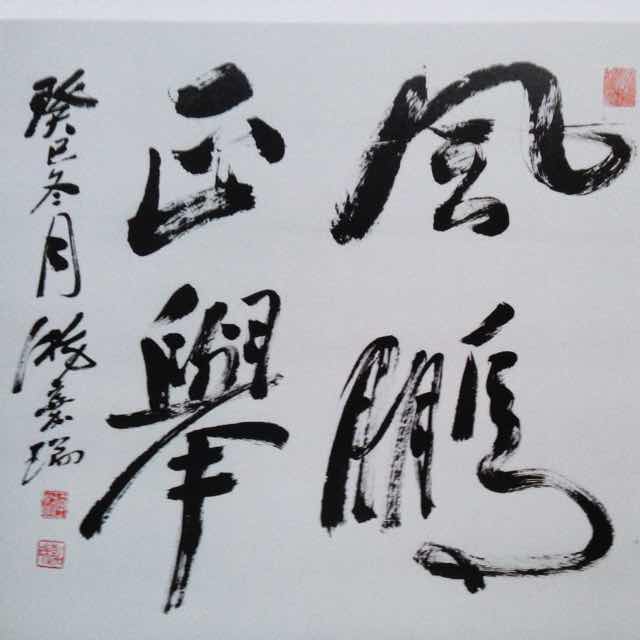 風鵬
正舉
癸巳冬月